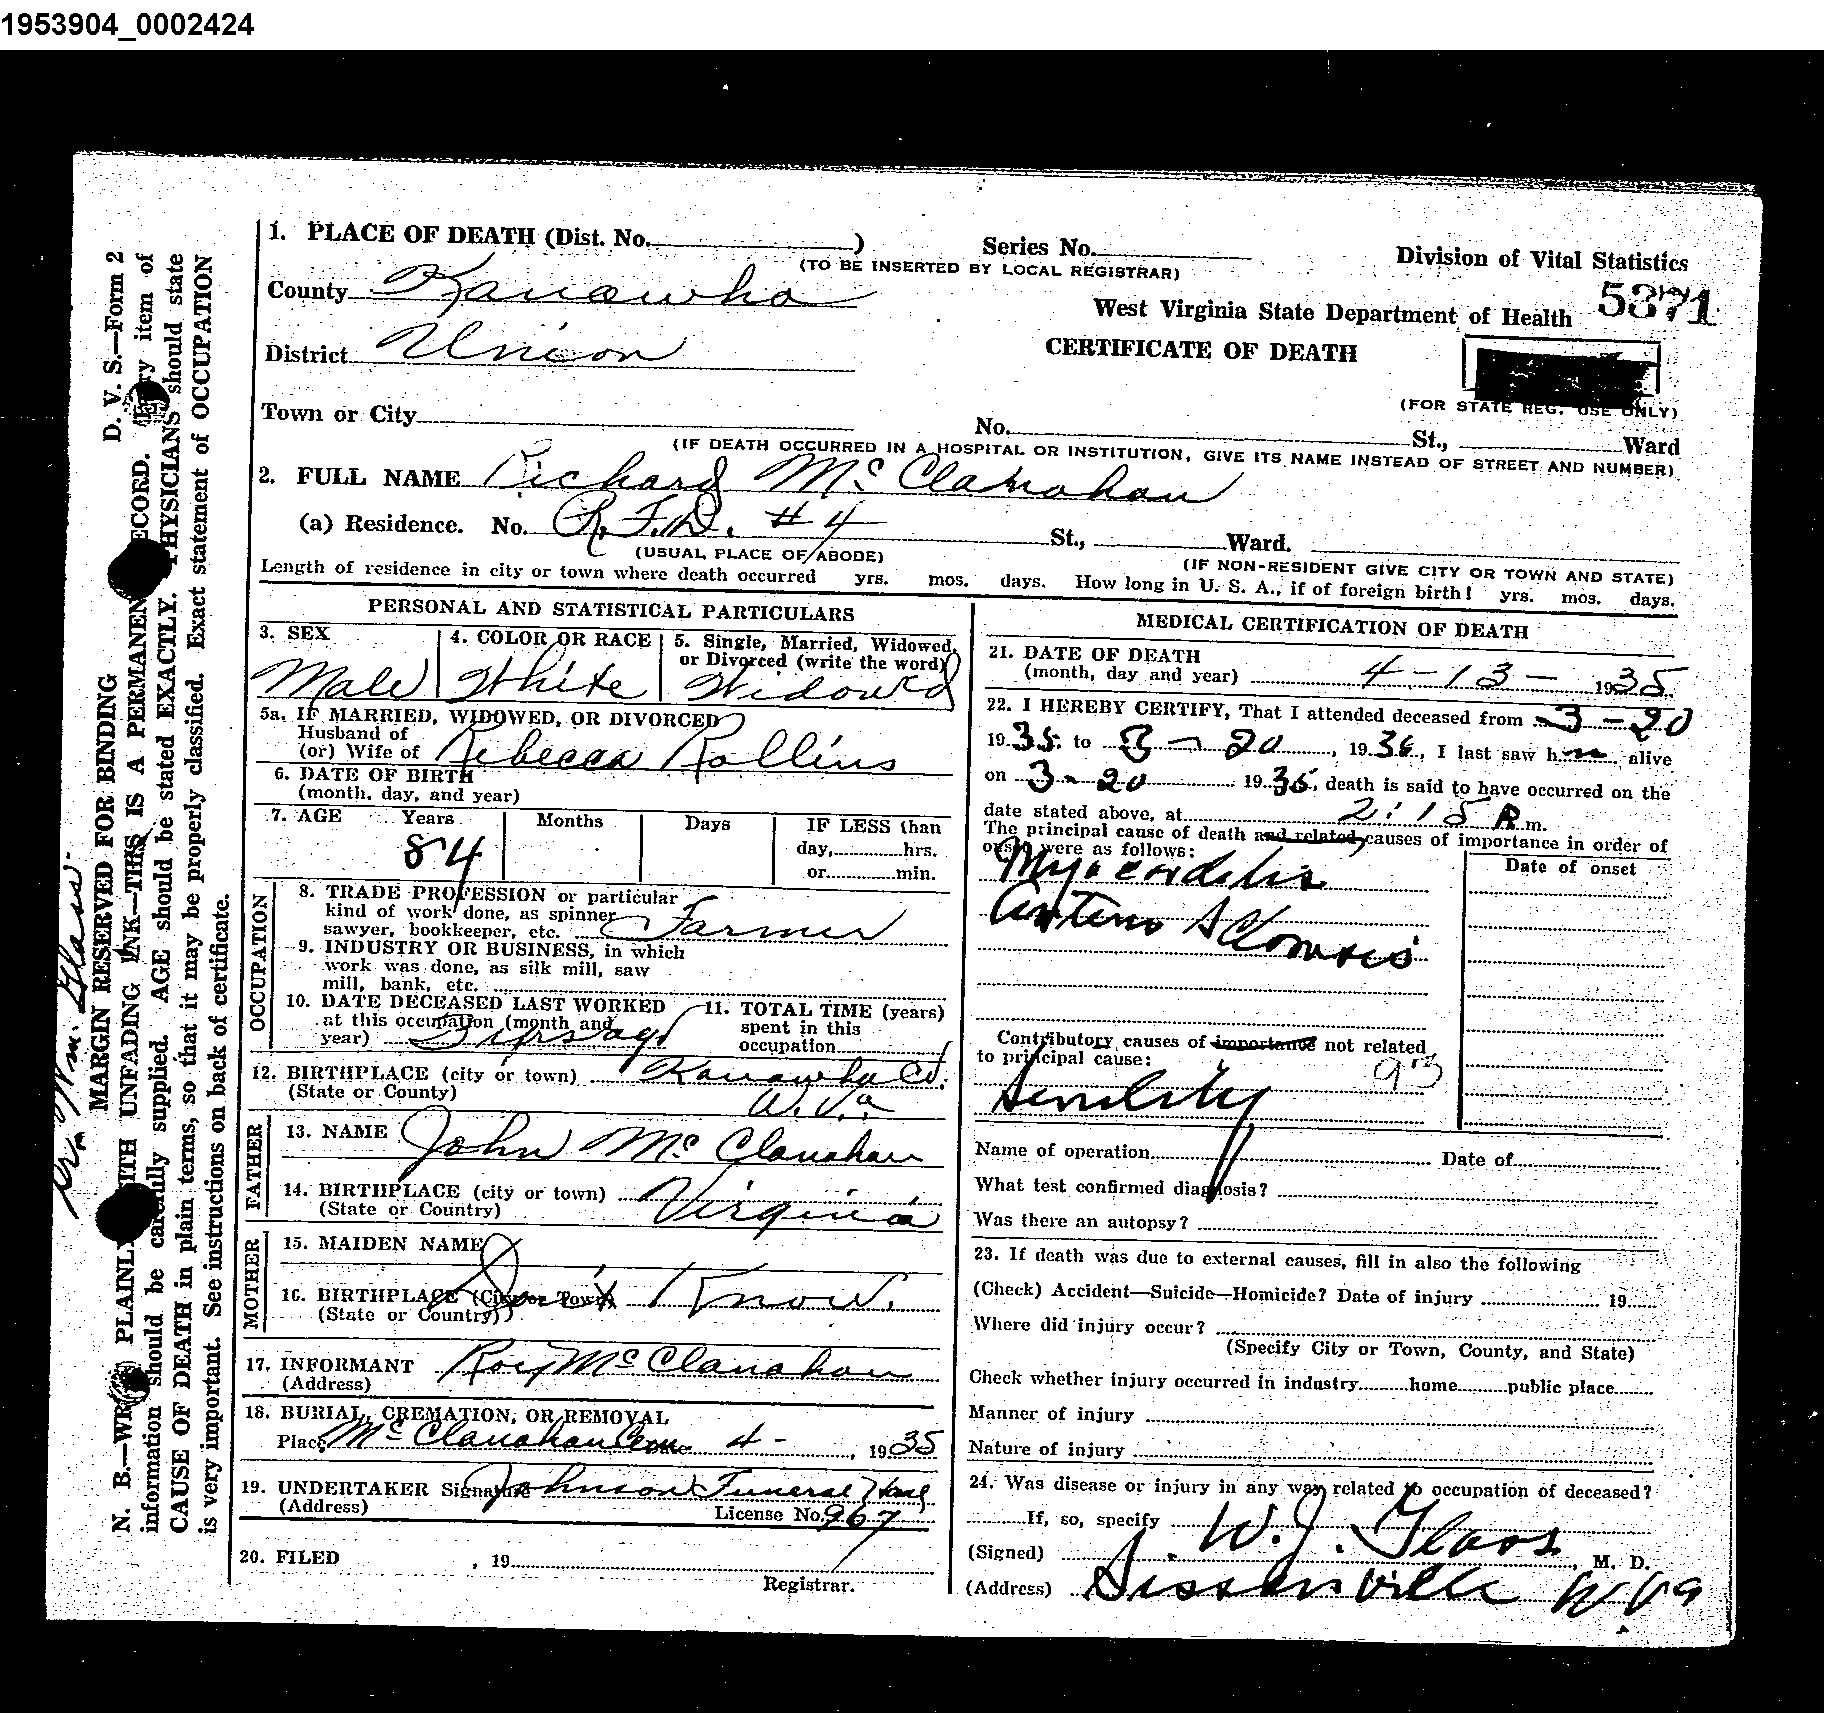 1953904_0002424
1. PLACE OF DEATH (Dist. No. )
Series No.
(TO BE INSERTED BY LOCAL REGISTRAR)
Division of Vital Statistics
County Kanawha
West Virginia State Department of Health
5371
District Union
CERTIFICATE OF DEATH
(FOR STATE REG. USE ONLY)
Town or City
No. St., Ward
(IF DEATH OCCURRED IN A HOSPITAL OR INSTITUTION, GIVE ITS NAME INSTEAD OF STREET AND NUMBER)
2. FULL NAME Richard McClanahan
(a) Residence. No. R.F.D. #4 St., Ward.
(USUAL PLACE OF ABODE)
(IF NON-RESIDENT GIVE CITY OR TOWN AND STATE)
Length of residence in city or town where death occurred yrs. mos. days. How long in U. S. A., if of foreign birth? yrs. mos. days.
PERSONAL AND STATISTICAL PARTICULARS
3. SEX
Male
4. COLOR OR RACE
White
5. Single, Married, Widowed,
or Divorced (write the word)
Widowed
5a. IF MARRIED, WIDOWED, OR DIVORCED
Husband of
(or) Wife of Rebecca Rollins
6. DATE OF BIRTH
(month, day, and year)
7. AGE Years Months Days IF LESS than
day, hrs.
or min.
84
OCCUPATION
8. TRADE PROFESSION or particular
kind of work done, as spinner
sawyer, bookkeeper, etc. Farmer
9. INDUSTRY OR BUSINESS, in which
work was done, as silk mill, saw
mill, bank, etc.
10. DATE DECEASED LAST WORKED
at this occupation (month and
year)
11. TOTAL TIME (years)
spent in this
occupation
12. BIRTHPLACE (city or town) Kanawha Co.
(State or County) W.Va
FATHER
13. NAME John McClanahan
14. BIRTHPLACE (city or town)
(State or Country) Virginia
MOTHER
15. MAIDEN NAME
16. BIRTHPLACE (City or Town)
(State or Country)
Don't Know.
17. INFORMANT Roy McClanahan
(Address)
18. BURIAL, CREMATION, OR REMOVAL
Place McClanahan Cem. 4- , 1935
19. UNDERTAKER Signature Johnson Funeral Home
(Address) License No. 967
20. FILED , 19
Registrar.
MEDICAL CERTIFICATION OF DEATH
21. DATE OF DEATH
(month, day and year) 4-13- 1935
22. I HEREBY CERTIFY, That I attended deceased from 3-20
1935. to 3-20, 1935, I last saw h im alive
on 3-20 1935, death is said to have occurred on the
date stated above, at 2:15 P.m.
The principal cause of death and related causes of importance in order of
onset were as follows:
Date of onset
Myocarditis
Arterio Sclerosis
Contributory causes of importance not related
to principal cause:
93
Senility
Name of operation Date of
What test confirmed diagnosis?
Was there an autopsy?
23. If death was due to external causes, fill in also the following
(Check) Accident—Suicide—Homicide? Date of injury 19
Where did injury occur?
(Specify City or Town, County, and State)
Check whether injury occurred in industry home public place
Manner of injury
Nature of injury
24. Was disease or injury in any way related to occupation of deceased?
If, so, specify
(Signed) W. J. Glass, M. D.
(Address) Sissonville W Va
D. V. S.—Form 2
MARGIN RESERVED FOR BINDING
N. B.—WRITE PLAINLY WITH UNFADING INK—THIS IS A PERMANENT RECORD. Every item of
information should be carefully supplied. AGE should be stated EXACTLY. PHYSICIANS should state
CAUSE OF DEATH in plain terms, so that it may be properly classified. Exact statement of OCCUPATION
is very important. See instructions on back of certificate.
Wm. Glass